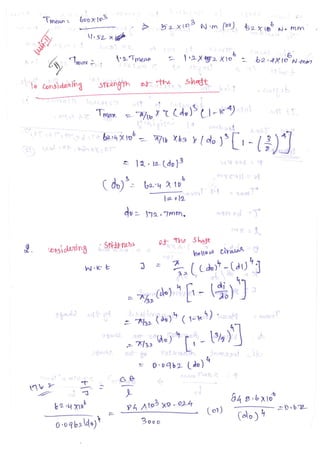 Tmean = 600x10³ / 11.52 ⇒ 52 x 10³ N·m (or) 52 x 10⁶ N·mm
Tmax = 1.2 Tmean = 1.2 x 52 x 10⁶ = 62.4x10⁶ N·mm
1. Considering strength of the shaft
Tmax = π/16 x τ (do)³ (1-k⁴)
62.4x10⁶ = π/16 x 63 x (do)³ [1 - (3/8)⁴]
= 12.12 (do)³
(do)³ = 62.4 x 10⁶ / 12.12
do = 172.7mm.
2. Considering Stiffness of The shaft
hollow circular
W.K.t J = π/32 [(do)⁴ - (di)⁴]
= π/32 (do)⁴ [1 - (di/do)⁴]
= π/32 (do)⁴ (1-k⁴)
= π/32 (do)⁴ [1 - (3/8)⁴]
= 0.0962 (do)⁴
T/J = Gθ/l
62.4x10⁶ / 0.0962(do)⁴ = 84x10³ x 0.024 / 3000 (or) 648.6x10⁶ / (do)⁴ = 0.672